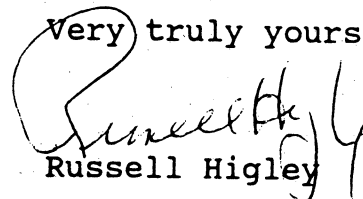 Very truly yours
Russell Hig
Russell Higley